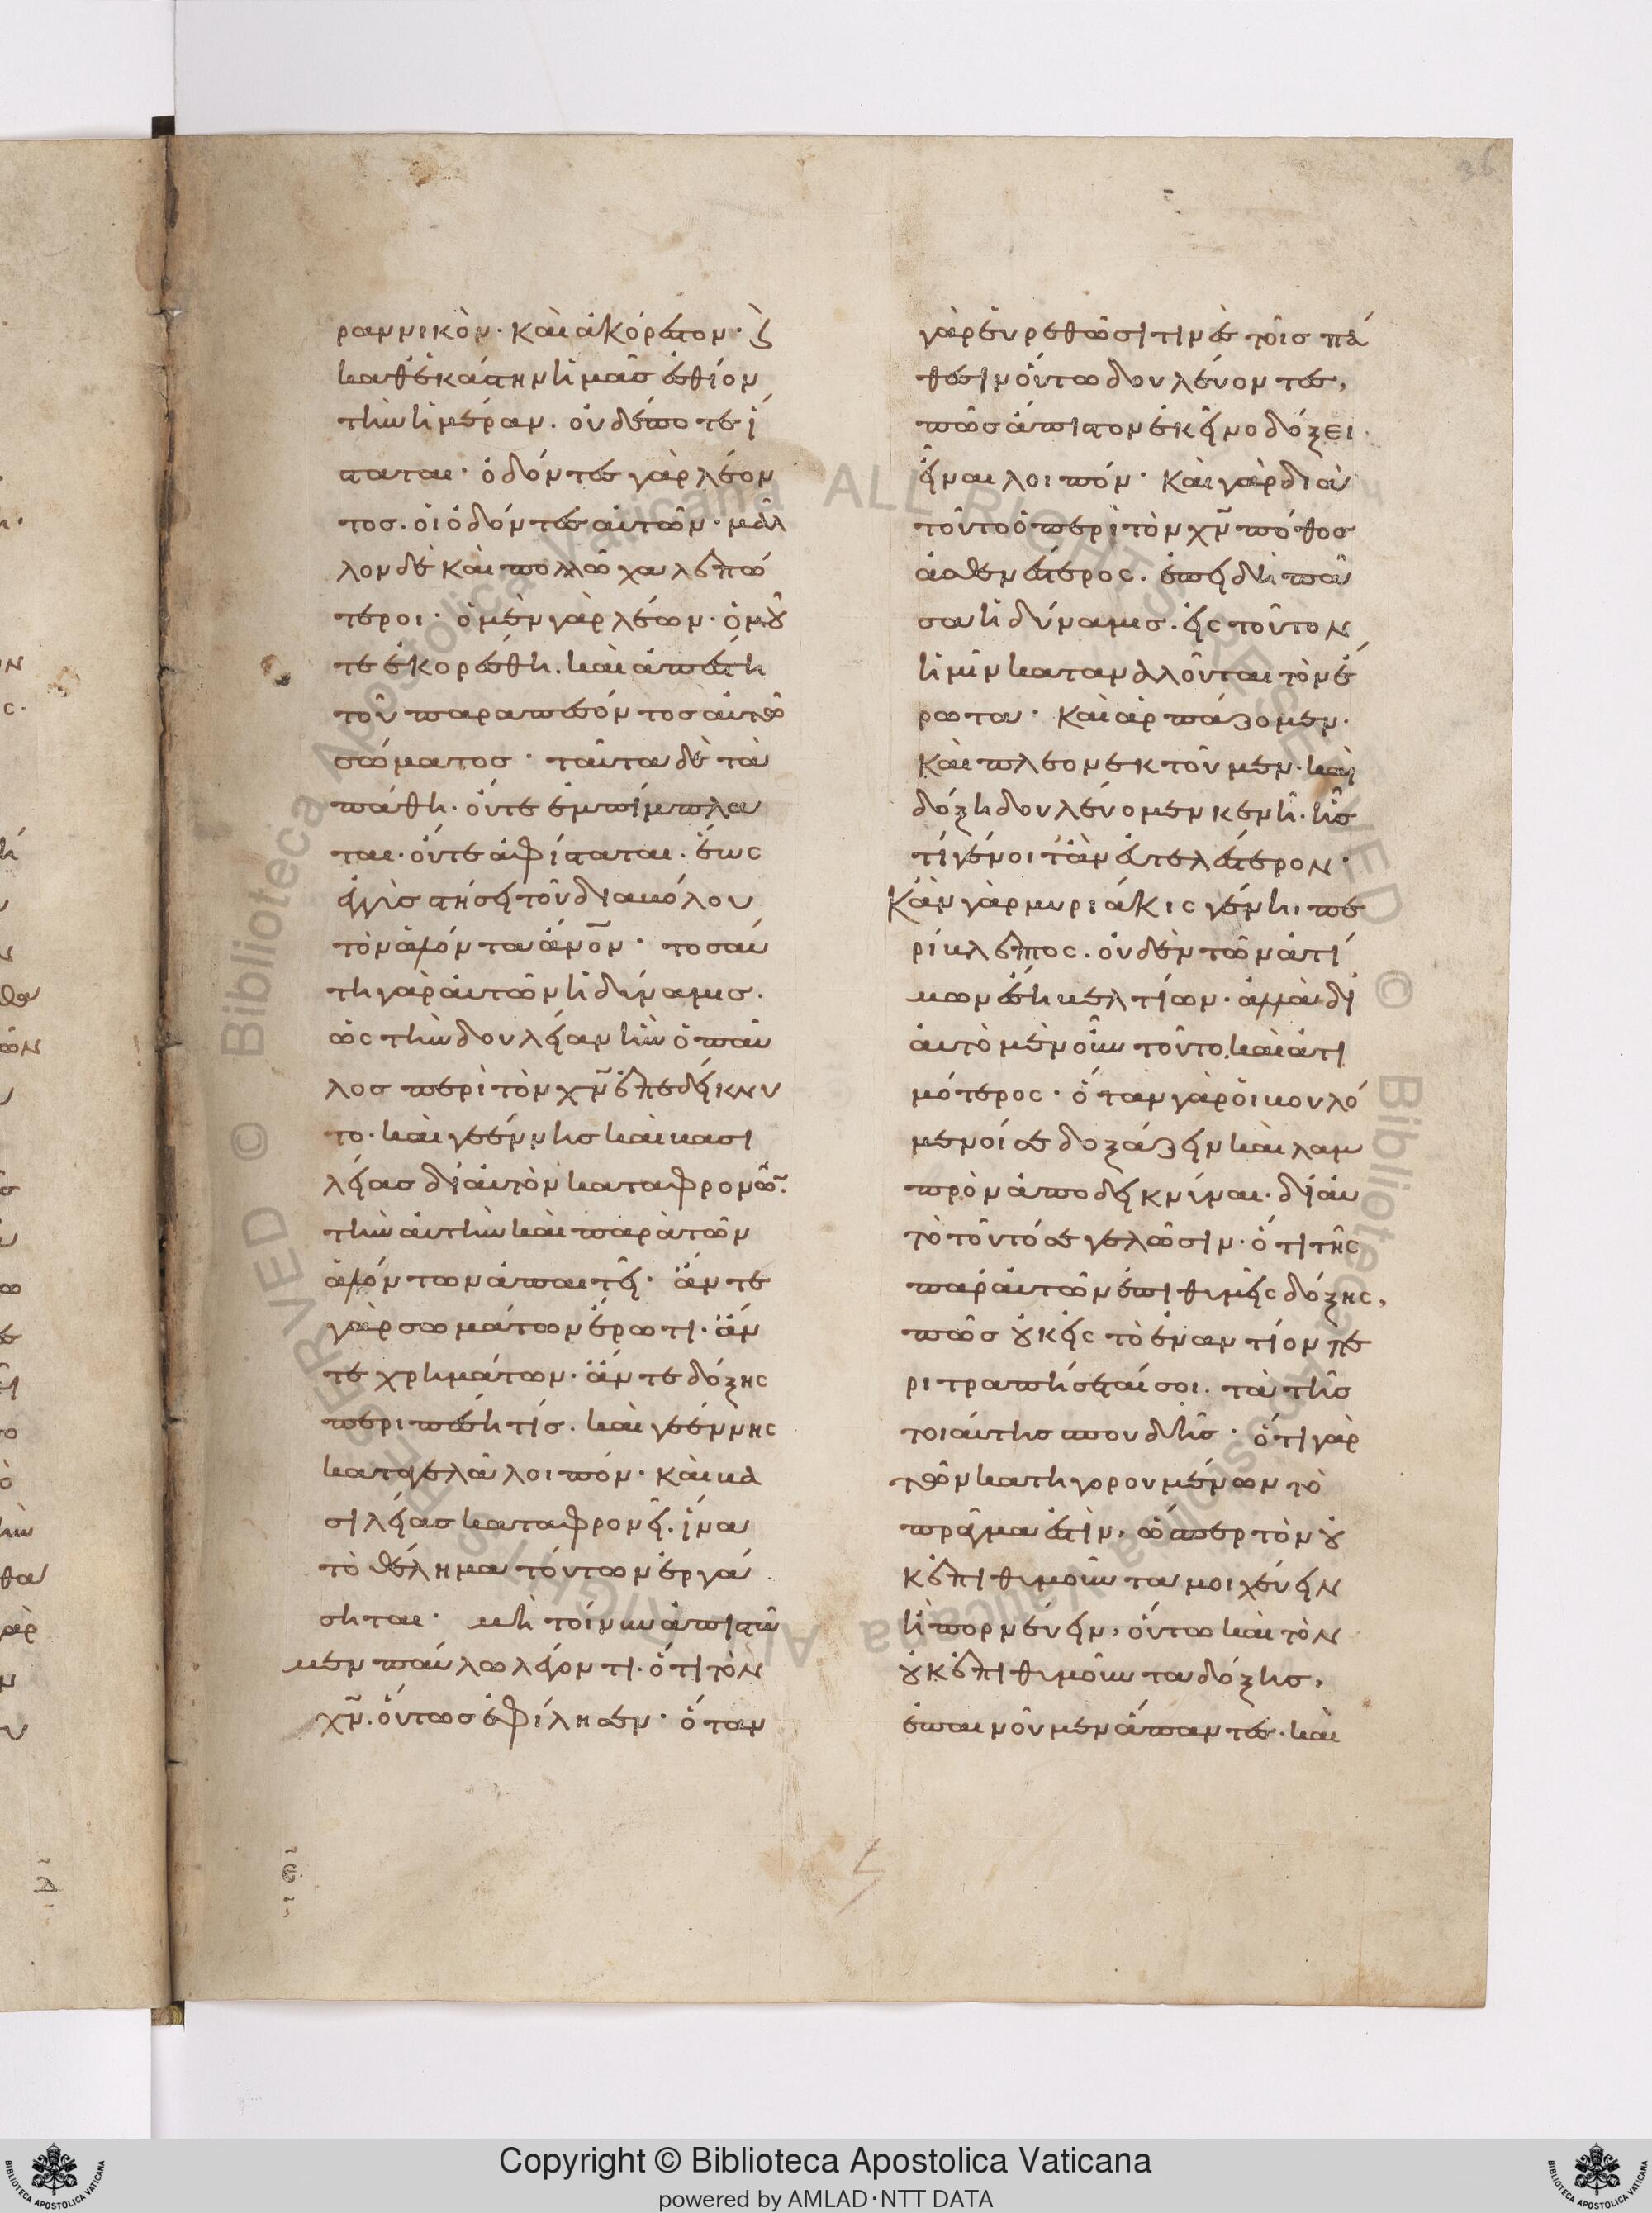 36
ραννικὸν· καὶ ἀκόρεστον· ϗ
καθεκάστην ἡμᾶς ἐσθίον
τὴν ἡμέραν. οὐδέποτε ἵ
σταται· ὀδόντες γὰρ λέον
τος. οἱ ὀδόντες αὐτῶν· μᾶλ
λον δὲ καὶ πολλῶ χαλεπώ
τεροι· ὁ μὲν γὰρ λέων. ὁμοῦ
τε ἐκορέσθη. καὶ ἀπέστη
τοῦ παραπεσόντος αὐτῶ
σώματος· ταῦτα δὲ τὰ
πάθη. οὔτε ἐμπίμπλα
ται· οὔτε ἀφίσταται. ἕως
ἐγγὺς στήσει τοῦ διαβόλου
τὸν ἁλόντα ἄνον· τοσαύ
τη γὰρ αὐτῶν ἡ δύναμις.
ὡς τὴν δουλείαν ἣν ὁ παῦ
λος περὶ τὸν χν ἐπεδείκνυ
το· καὶ γεέννης καὶ βασι
λείας δι' αὐτὸν καταφρονῶν.
τὴν αὐτὴν καὶ παρὰ τῶν
ἁλόντων ἀπαιτεῖ· ἄν τε
γὰρ σωμάτων ἔρωτι. ἄν
τε χρημάτων. ἄν τε δόξης
περιπέση τίς. καὶ γεέννης
καταγελᾶ λοιπόν· καὶ βα
σιλείας καταφρονεῖ. ἵνα
τὸ θέλημα τούτων ἐργά
σηται· μὴ τοίνυν ἀπιστῶ
μεν παύλω λέγοντι. ὅτι τὸν
χν. οὕτως ἐφίλησεν· ὅταν
γὰρ εὑρεθῶσι τινὲς τοῖς πά
θεσιν οὕτω δουλεύοντες,
πῶς ἄπιστον ἐκεῖνο δόξει
εἶναι λοιπόν· καὶ γὰρ διὰ
τοῦτο ὁ περὶ τὸν χν πόθος
ἀσθενέστερος. ἐπειδὴ πᾶ
σα ἡ δύναμις. εἰς τοῦτον
ἡμῖν καταναλοῦται τὸν ἔ
ρωτα· καὶ ἁρπάζομεν.
καὶ πλεονεκτοῦμεν. καὶ
δόξη δουλεύομεν κενῆ. ἧς
τί γένοιτ' ἂν εὐτελέστερον·
Κἂν γὰρ μυριάκις γένη πε
ρίβλεπτος. οὐδὲν τῶν ἀτί
μων ἔση βελτίων· ἀλλὰ δι
αὐτὸ μὲν οὖν τοῦτο, καὶ ἀτι
μότερος· ὅταν γὰρ οἱ βουλό
μενοί σε δοξάζειν καὶ λαμ
πρὸν ἀποδεικνύναι. δι' αὐ
τὸ τοῦτό σε γελῶσιν. ὅτι τῆς
παρ' αὐτῶν ἐπιθυμεῖς δόξης,
πῶς οὐκ εἰς τὸ ἐναντίον πε
ριτραπήσεταί σοι. τὰ τῆς
τοιαύτης σπουδῆς· ὅτι γὰρ
τῶν κατηγορουμένων τὸ
πρᾶγμα ἐστὶν, ὥσπερ τὸν οὐ
κ ἐπιθυμοῦντα μοιχεύειν
ἢ πορνεύειν, οὕτω καὶ τὸν
οὐκ ἐπιθυμοῦντα δόξης,
ἐπαινοῦμεν ἅπαντες. καὶ
ε
Copyright © Biblioteca Apostolica Vaticana
powered by AMLAD·NTT DATA